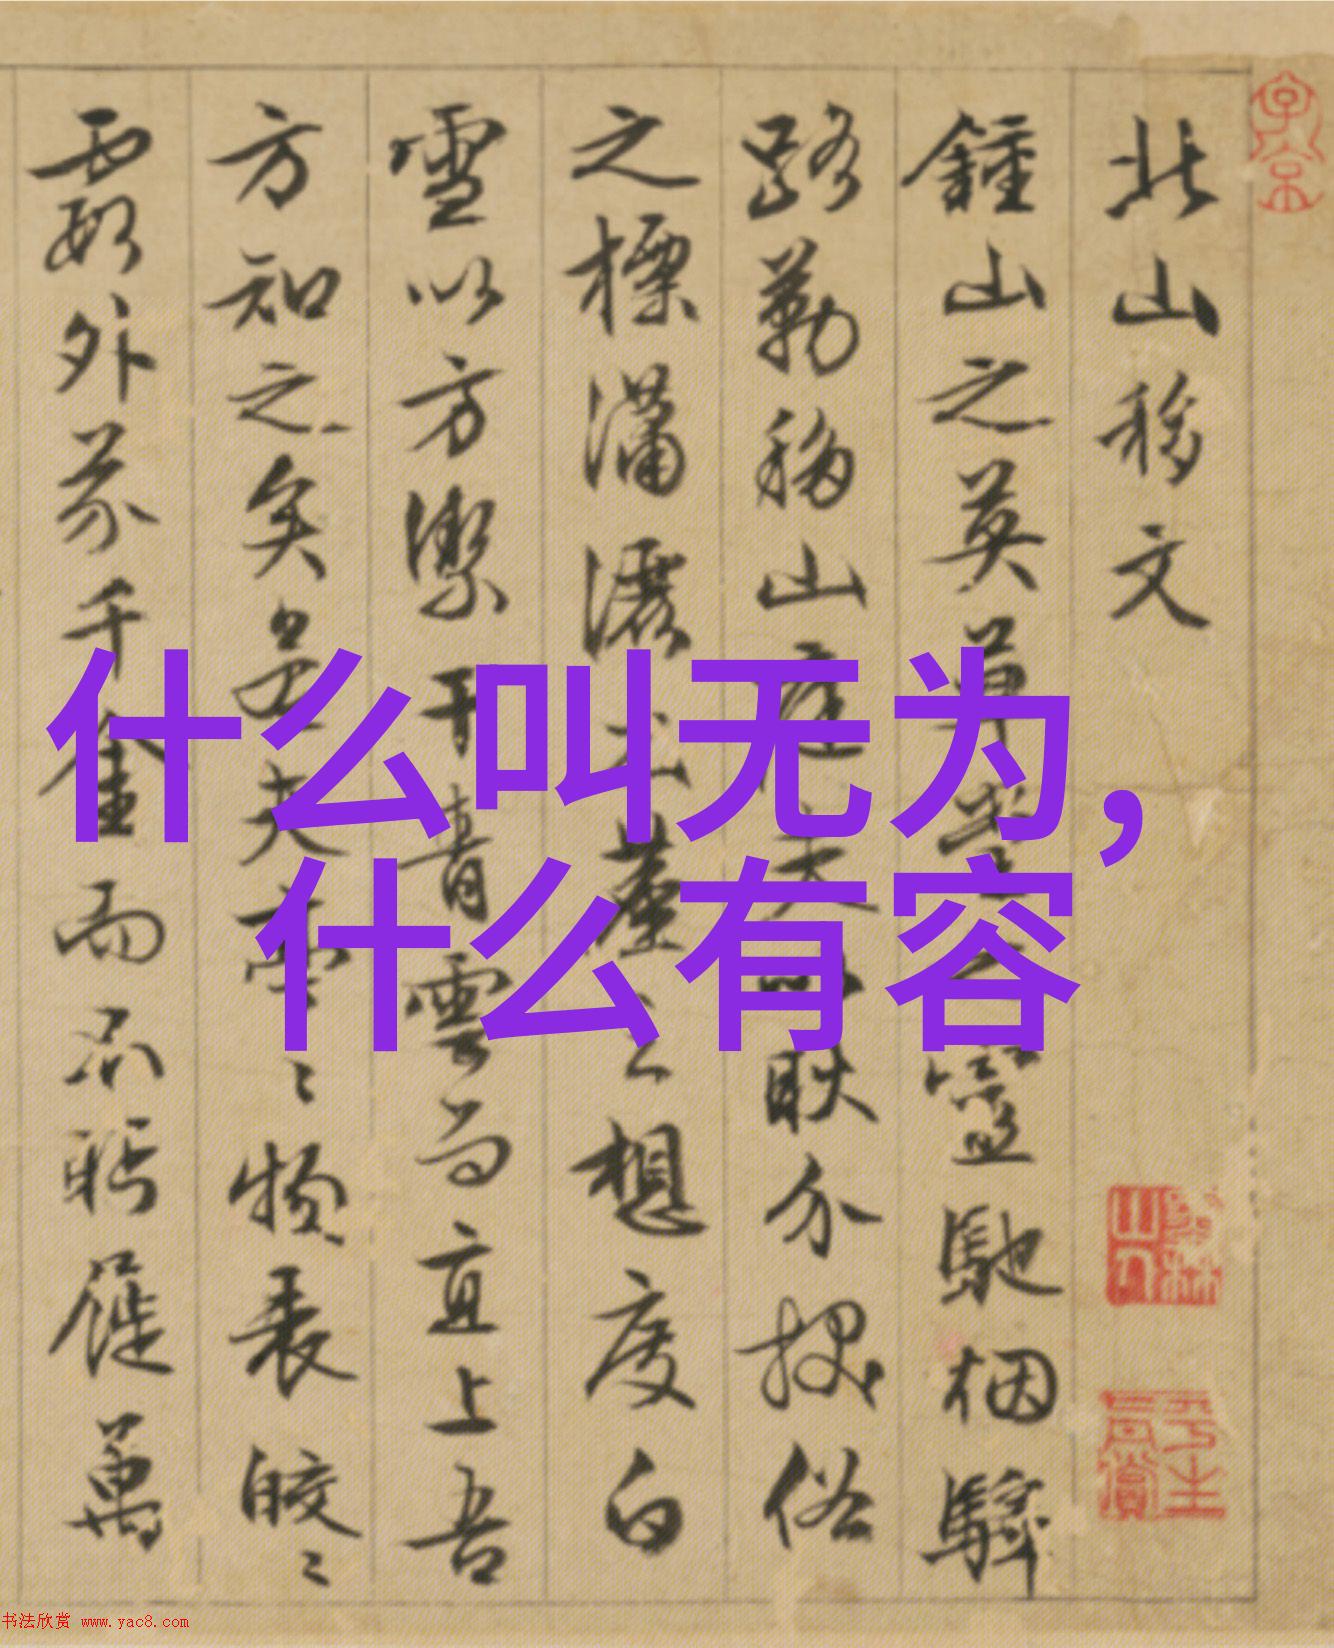 什么叫无为,
什么有容
北山移文
鍾山之英草堂之靈馳烟驛
路勒移山庭夫以耿介拔俗
之標瀟灑出塵之想度白
雪以方潔干青雲而直上吾
方知之矣若夫亭〻物表皎〻
霞外芥千金而不盼屣萬
子京
书法欣赏 www.yac8.com